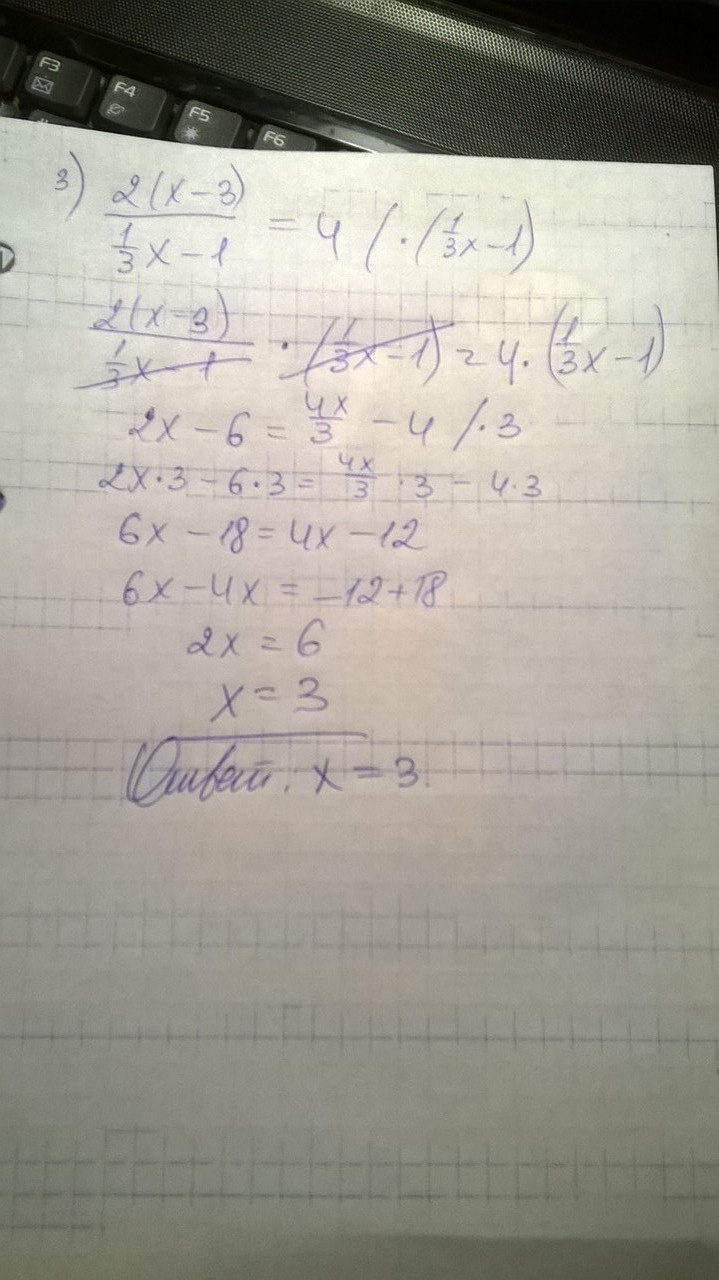 F3
F4
F5
F6
3) 2(x-3)/(1/3 x-1) = 4 /·(1/3 x-1)
2(x-3)/(1/3 x-1) · (1/3 x-1) = 4·(1/3 x-1)
2x-6 = 4x/3 -4 /·3
2x·3-6·3= 4x/3 ·3 - 4·3
6x-18=4x-12
6x-4x=-12+18
2x=6
x=3
Ответ: x=3.